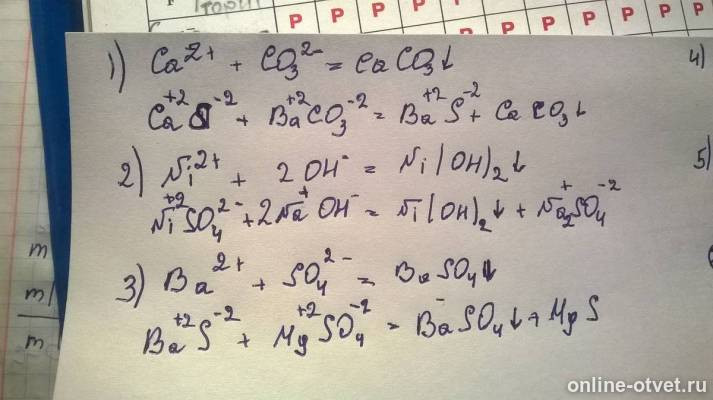 P P P P P P
P P P
1) Ca²⁺ + CO₃²⁻ = CaCO₃↓
4)
Ca⁺²S⁻² + Ba⁺²CO₃⁻² = Ba⁺²S⁻² + CaCO₃↓
2) Ni²⁺ + 2OH⁻ = Ni(OH)₂↓
5)
Ni⁺²SO₄²⁻ + 2Na⁺OH⁻ = Ni(OH)₂↓ + Na₂⁺SO₄⁻²
m
3) Ba²⁺ + SO₄²⁻ = BaSO₄↓
m
Ba⁺²S⁻² + Mg⁺²SO₄⁻² = BaSO₄↓ + MgS
m
online-otvet.ru